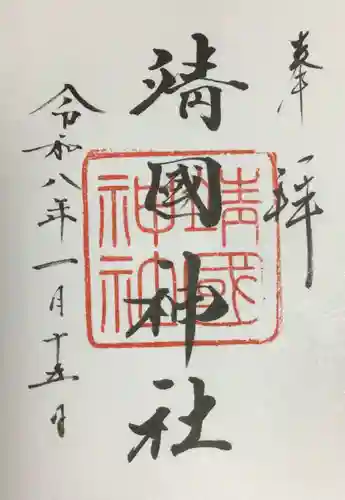 奉拝
靖國神社
靖國神社
令和八年一月十五日